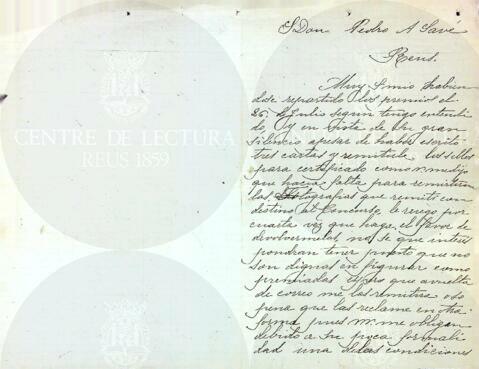 S. Don Pedro A Savé
Reus.
Muy Sr mio habien
dose repartido los premios el
26 de Julio segun tengo entendi
do, y en vista de su gran
silencio apesar de haber escrito
tres cartas y remitido los sellos
para certificado como me dijo
que hacia falta para remitirme
las Fotografias que remiti con
destino al Concurso, le ruego por
cuarta vez que haga el favor de
devolvermelas, no se que interes
pondran tener puesto que no
son dignas en figurar como
premiadas espero que a vuelta
de correo me las remitira o so
pena que las reclame en otra
forma pues me obligan
debido a su poca formali
dad una de las condiciones
CENTRE DE LECTURA
REUS 1859